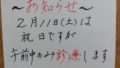 ～お知らせ～
2月11日(土)は
祝日ですが
午前中のみ診療します